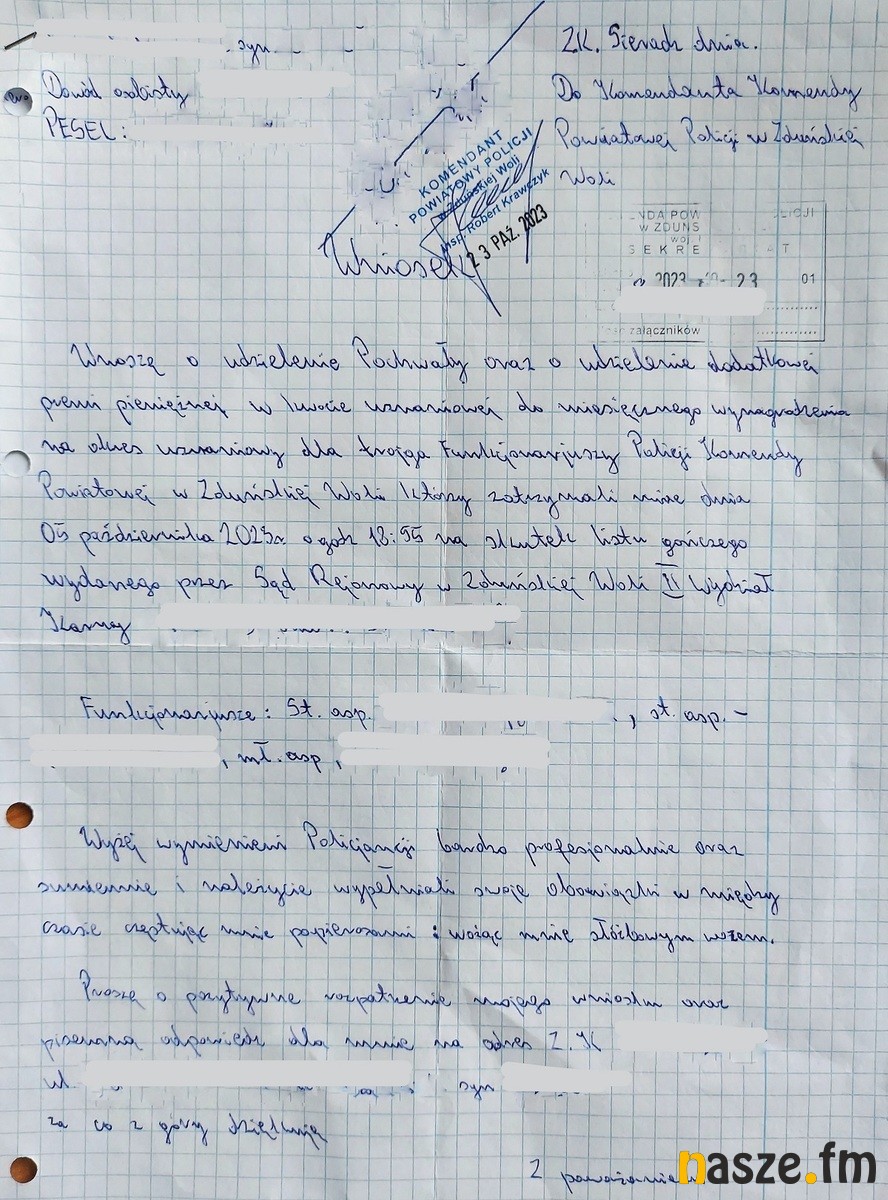 syn.
ZK. Sieradz dnia.
Dowód osobisty
Do Komendanta Komendy
PESEL:
Powiatowej Policji w Zduńskiej
Woli
KOMENDANT
POWIATOWY POLICJI
w Zduńskiej Woli
insp. Robert Krawczyk
23 PAŹ. 2023
NDA POW LICJI
W ZDUŃS
woj. ł
SEKRE AT
2023 -10- 23 01
załączników
Wniosek
Wnoszę o udzielenie Pochwały oraz o udzielenie dodatkowej
premi pieniężnej w kwocie uznaniowej do miesięcznego wynagrodzenia
na okres uznaniowy dla trojga Funkcjonarjuszy Policji Komendy
Powiatowej w Zduńskiej Woli którzy zatrzymali mnie dnia
05 października 2023r. o godz 18:55 na skutek listu gończego
wydanego przez Sąd Rejonowy w Zduńskiej Woli II Wydział
Karny
Funkcjonarjusze: St. asp. , st. asp. -
, mł. asp.
Wyżej wymienieni Policjanci bardzo profesjonalnie oraz
sumiennie i należycie wypełniali swoje obowiązki w między
czasie częstując mnie papierosami i wożąc mnie słóżbowym wozem.
Proszę o pozytywne rozpatrzenie mojego wniosku oraz
pisemną odpowiedź dla mnie na adres Z.K
ul syn
za co z góry dziękuję
Z poważaniem
nasze.fm